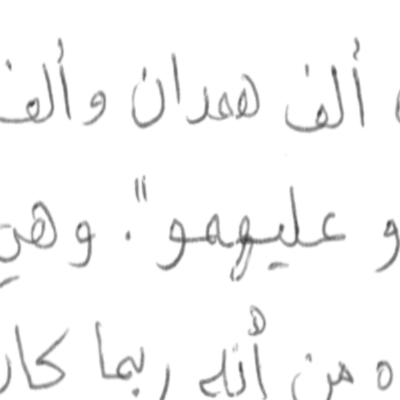 ألف همدان وألف
و عليهمو". وهي
ه من أنه ربما كان